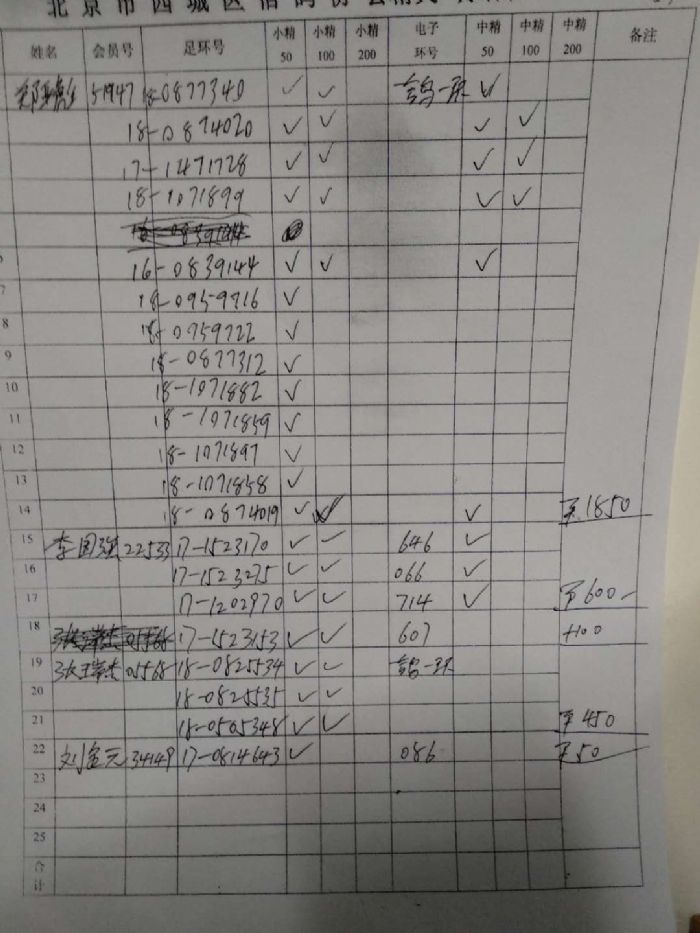 北京市西城区信鸽协会
姓名 会员号 足环号 小精50 小精100 小精200 电子环号 中精50 中精100 中精200 备注
51947 18-0877340 ✓ ✓ 鸽一环 ✓
18-0874020 ✓ ✓ ✓ ✓
17-1471728 ✓ ✓ ✓ ✓
18-1071899 ✓ ✓ ✓ ✓
16-0839144 ✓ ✓ ✓
7 18-0959716 ✓
8 18-0959722 ✓
9 18-0877312 ✓
10 18-1071882 ✓
11 18-1071859 ✓
12 18-1071897 ✓
13 18-1071858 ✓
14 18-0874019 ✓ ✓ ✓ ¥1850
15 李国强 22533 17-1523170 ✓ ✓ 646 ✓
16 17-1523275 ✓ ✓ 066 ✓
17 17-1202970 ✓ ✓ 714 ✓ ¥600
18 17-1523153 ✓ ✓ 607
19 05568 18-0825534 ✓ ✓ 鸽一环
20 18-0825535 ✓ ✓
21 18-0505348 ✓ ✓ ¥450
22 刘金元 34149 17-0814643 ✓ 086 ¥50
23
24
25
合计